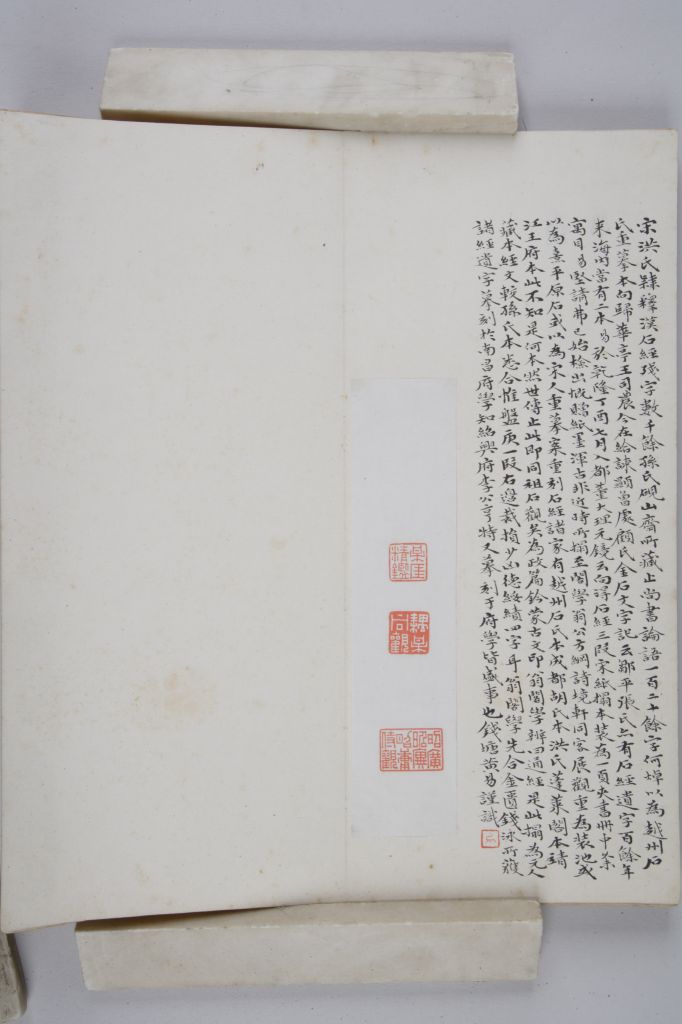 宋洪氏隸釋漢石經殘字數千餘孫氏硯山齋所藏止尚書論語一百二十餘字何焯以為越州石
氏重摹本向歸華亭王司農今在給諫顯曾處顧氏金石文字記云鄒平張氏亦有石經遺字百餘年
來海內當有二本易於乾隆丁酉七月入都董大理元鏡云向得石經三段宋紙搨本裝為一頁夾書冊中榮
寓目易堅請弗已始檢出慨贈紙墨渾古非近時所搨至閣學翁公方綱詩境軒同客展觀重為裝池或
以為熹平原石或以為宋人重摹案重刻石經諸家有越州石氏本成都胡氏本洪氏蓬萊閣本靖
江王府本此不知是何本然世傳止此即同祖石觀矣為政篇鈐蒙古文印翁閣學辨曰通經是此搨為元人
藏本經文較孫氏本悉合惟盤庚一段右邊裁損少凶德綏績四字耳翁閣學先合金匱錢泳所獲
諸經遺字摹刻於南昌府學知紹興府李公亨特又摹刻于府學皆盛事也錢塘黃易謹識
精鑑